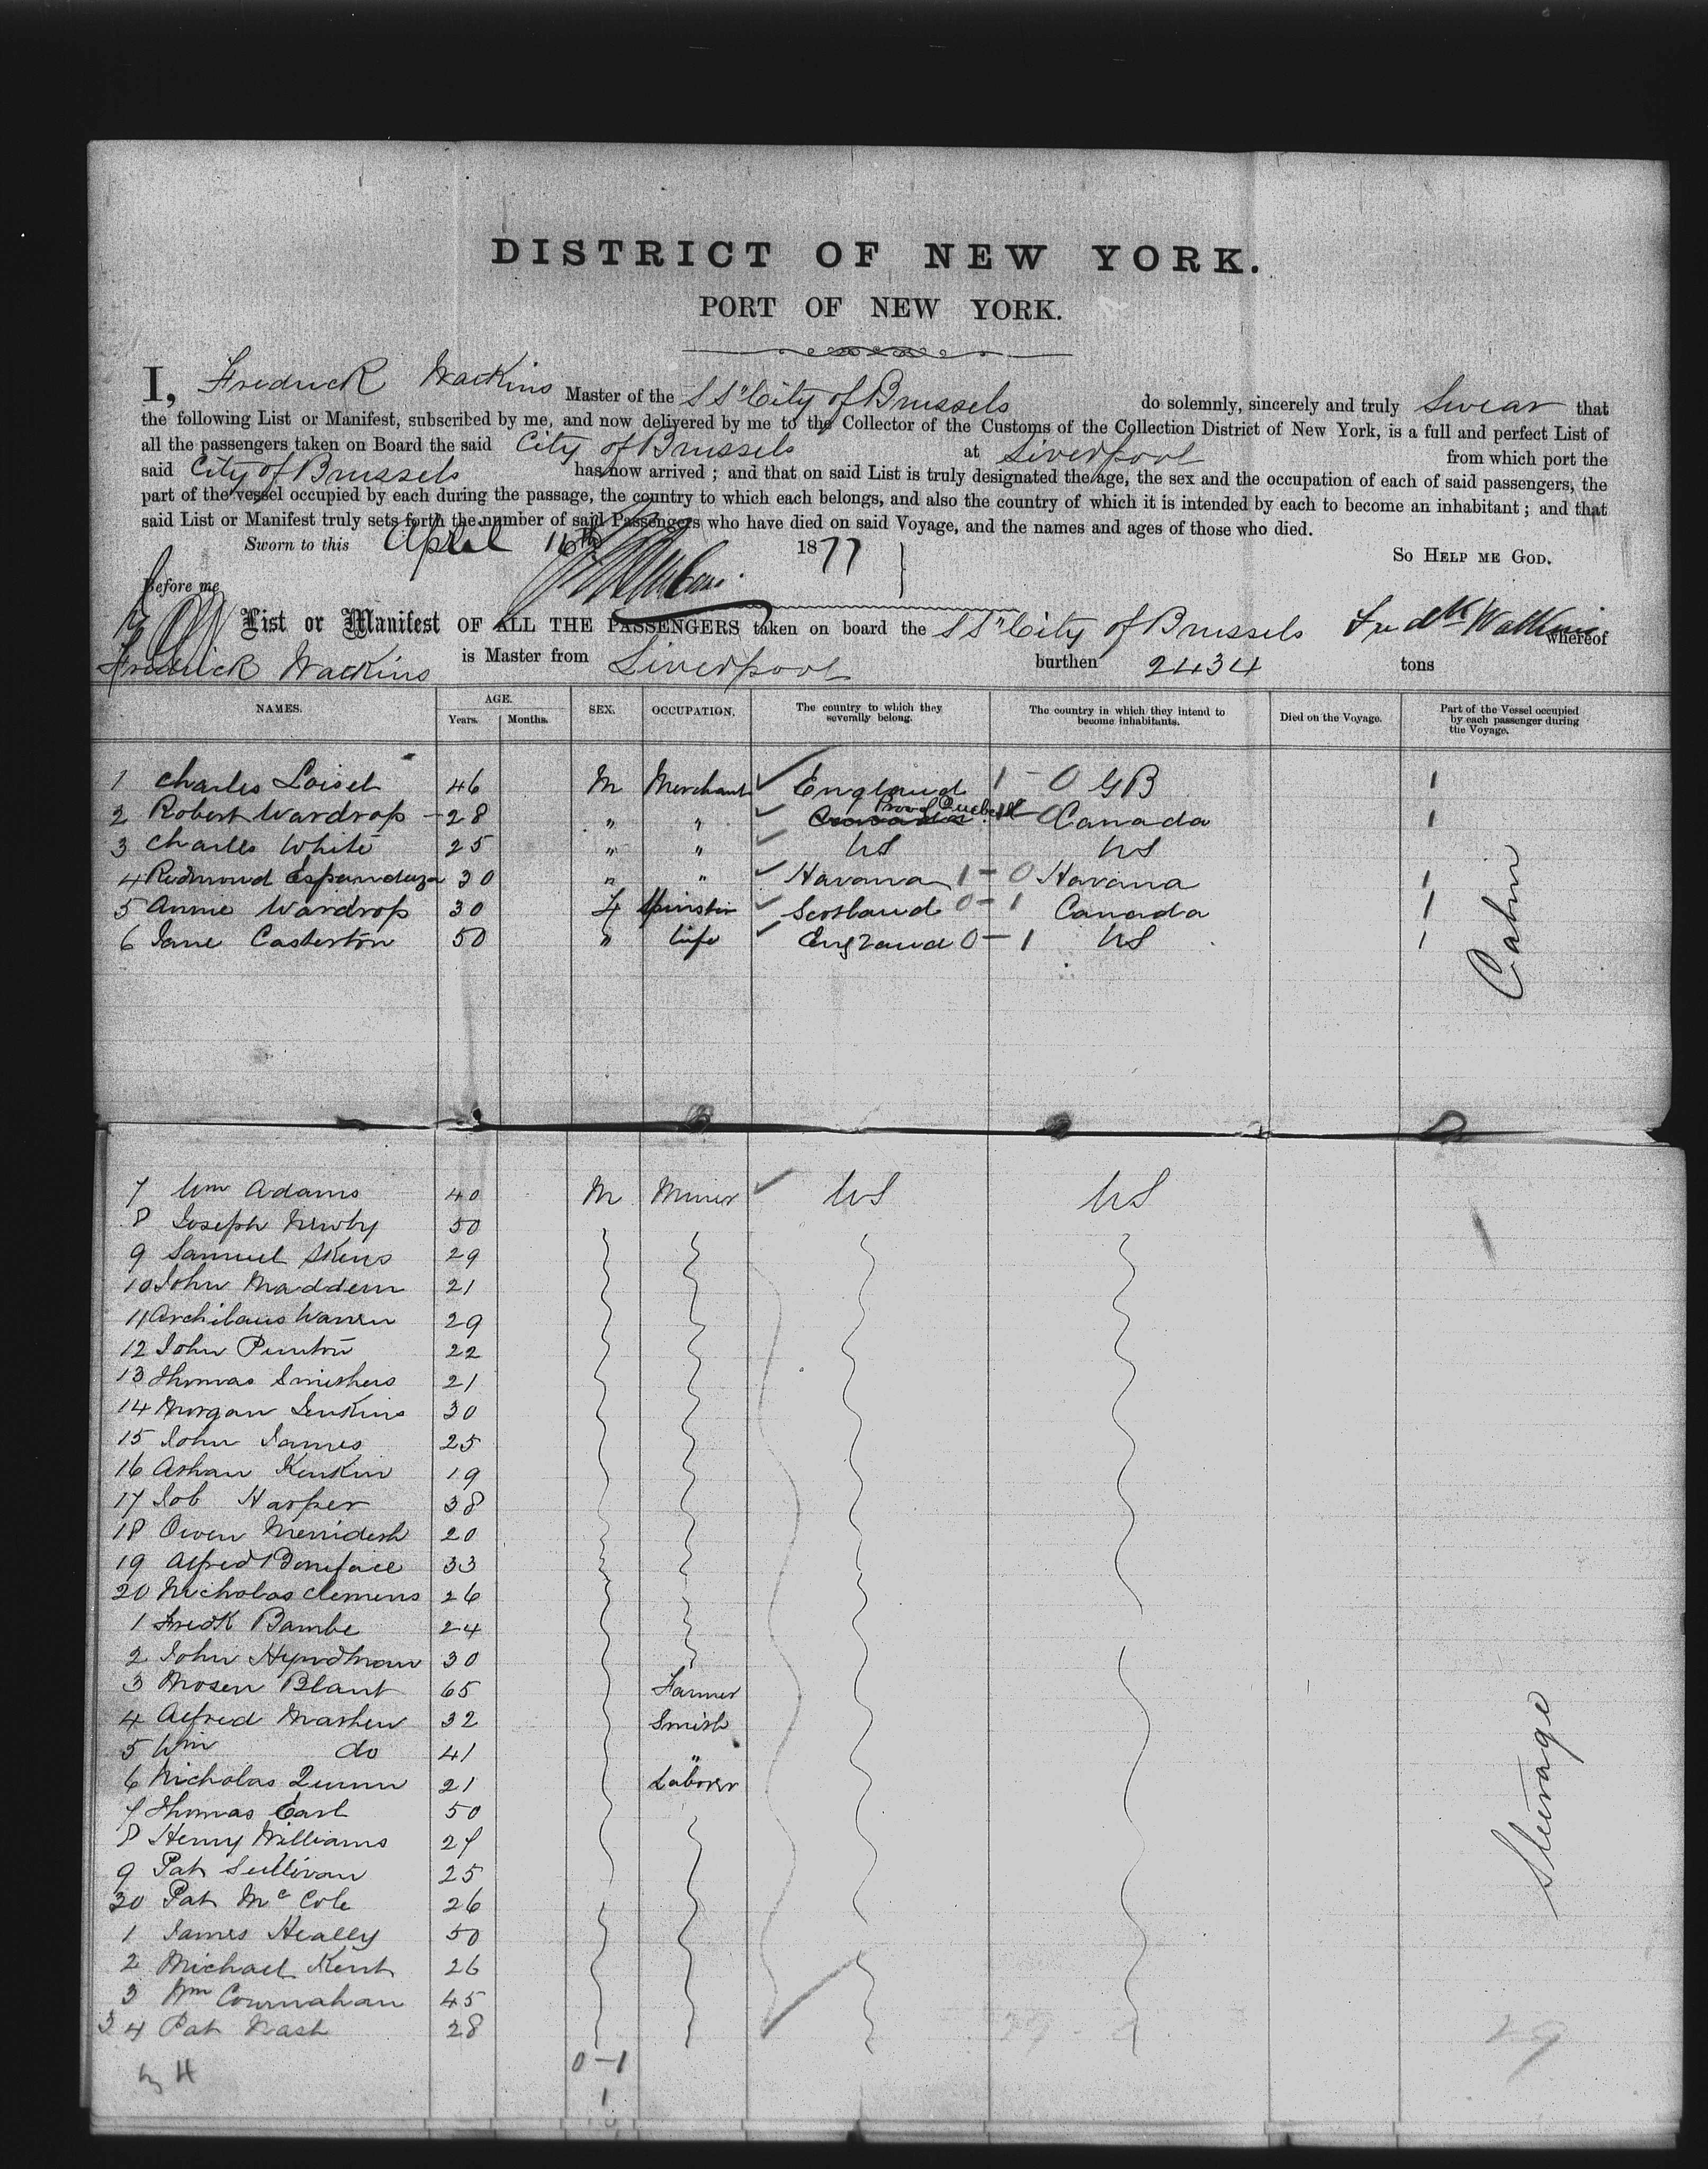 DISTRICT OF NEW YORK.
PORT OF NEW YORK.
I, Fredrick Watkins Master of the SS "City of Brussels do solemnly, sincerely and truly Swear that
the following List or Manifest, subscribed by me, and now delivered by me to the Collector of the Customs of the Collection District of New York, is a full and perfect List of
all the passengers taken on Board the said City of Brussels at Liverpool from which port the
said City of Brussels has now arrived ; and that on said List is truly designated the age, the sex and the occupation of each of said passengers, the
part of the vessel occupied by each during the passage, the country to which each belongs, and also the country of which it is intended by each to become an inhabitant ; and that
said List or Manifest truly sets forth the number of said Passengers who have died on said Voyage, and the names and ages of those who died.
Sworn to this April 16th 1877
SO HELP ME GOD.
Before me
List or Manifest OF ALL THE PASSENGERS taken on board the SS "City of Brussels Fredk Watkins whereof
Fredrick Watkins is Master from Liverpool burthen 2434 tons
NAMES. AGE. Years. Months. SEX. OCCUPATION. The country to which they severally belong. The country in which they intend to become inhabitants. Died on the Voyage. Part of the Vessel occupied by each passenger during the Voyage.
1 Charles Loisel 46 M Merchant England 1 - 0 GB 1
2 Robert Wardrop 28 " " Canada Canada 1
3 Charles White 25 " " US US
4 Redmond 30 " " Havana 1 - 0 Havana 1
5 Annie Wardrop 30 F Spinster Scotland 0 - 1 Canada 1
6 Jane Casterton 50 " Wife England 0 - 1 US 1
Cabin
7 Wm Adams 40 M Miner US US
8 Joseph Newby 50
9 Samuel Skens 29
10 John Maddern 21
11 Archilaus Warren 29
12 John Punton 22
13 Thomas Smithers 21
14 Morgan Jenkins 30
15 John James 25
16 Kenkin 19
17 Job Harper 38
18 Owen Merrideth 20
19 Alfred Boniface 33
20 Nicholas Clemens 26
1 Fredk Bambe 24
2 John Hyndman 30
3 Mosen Blant 65 Farmer
4 Alfred Mathew 32 Smith
5 Wm do 41 "
6 Nicholas Quinn 21 Laborer
7 Thomas Earl 50
8 Henry Williams 27
9 Pat Sullivan 25
30 Pat McCole 26
1 James Heally 50
2 Michael Kent 26
3 Wm Cournahan 45
34 Pat Nash 28
Steerage
0 - 1
1
29